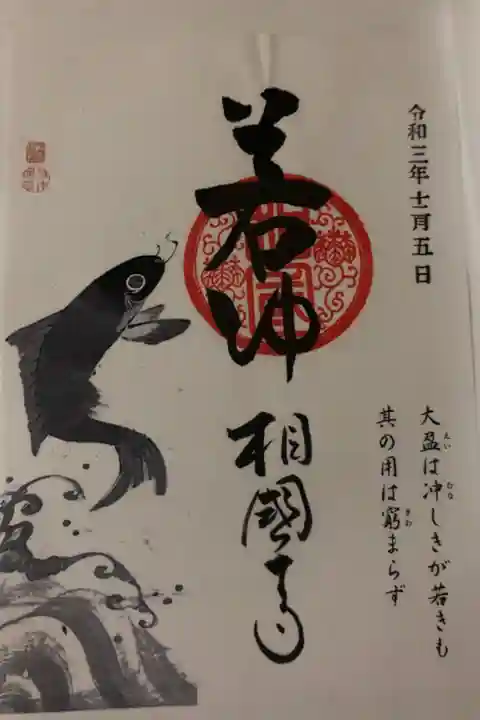 令和三年十一月五日
若冲
相國寺
大盈は冲しきが若きも
えい むな
其の用は窮まらず
きわ